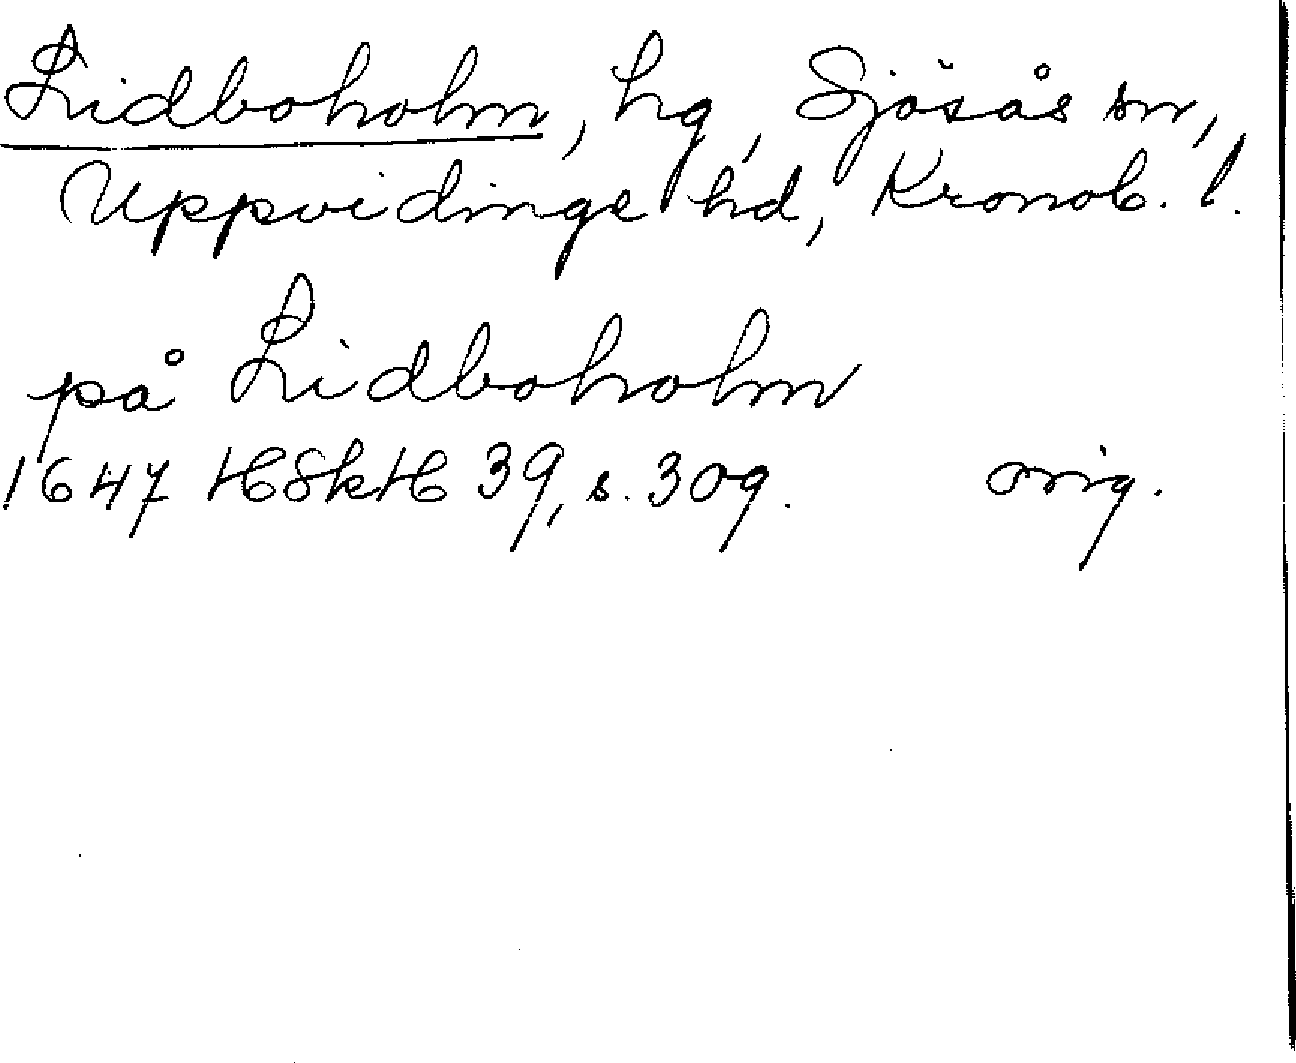 Lidboholm, hg, Sjösås sn,
Uppvidinge hd, Kronob. l.
på Lidboholm
1647 HSkH 39, s. 309. orig.